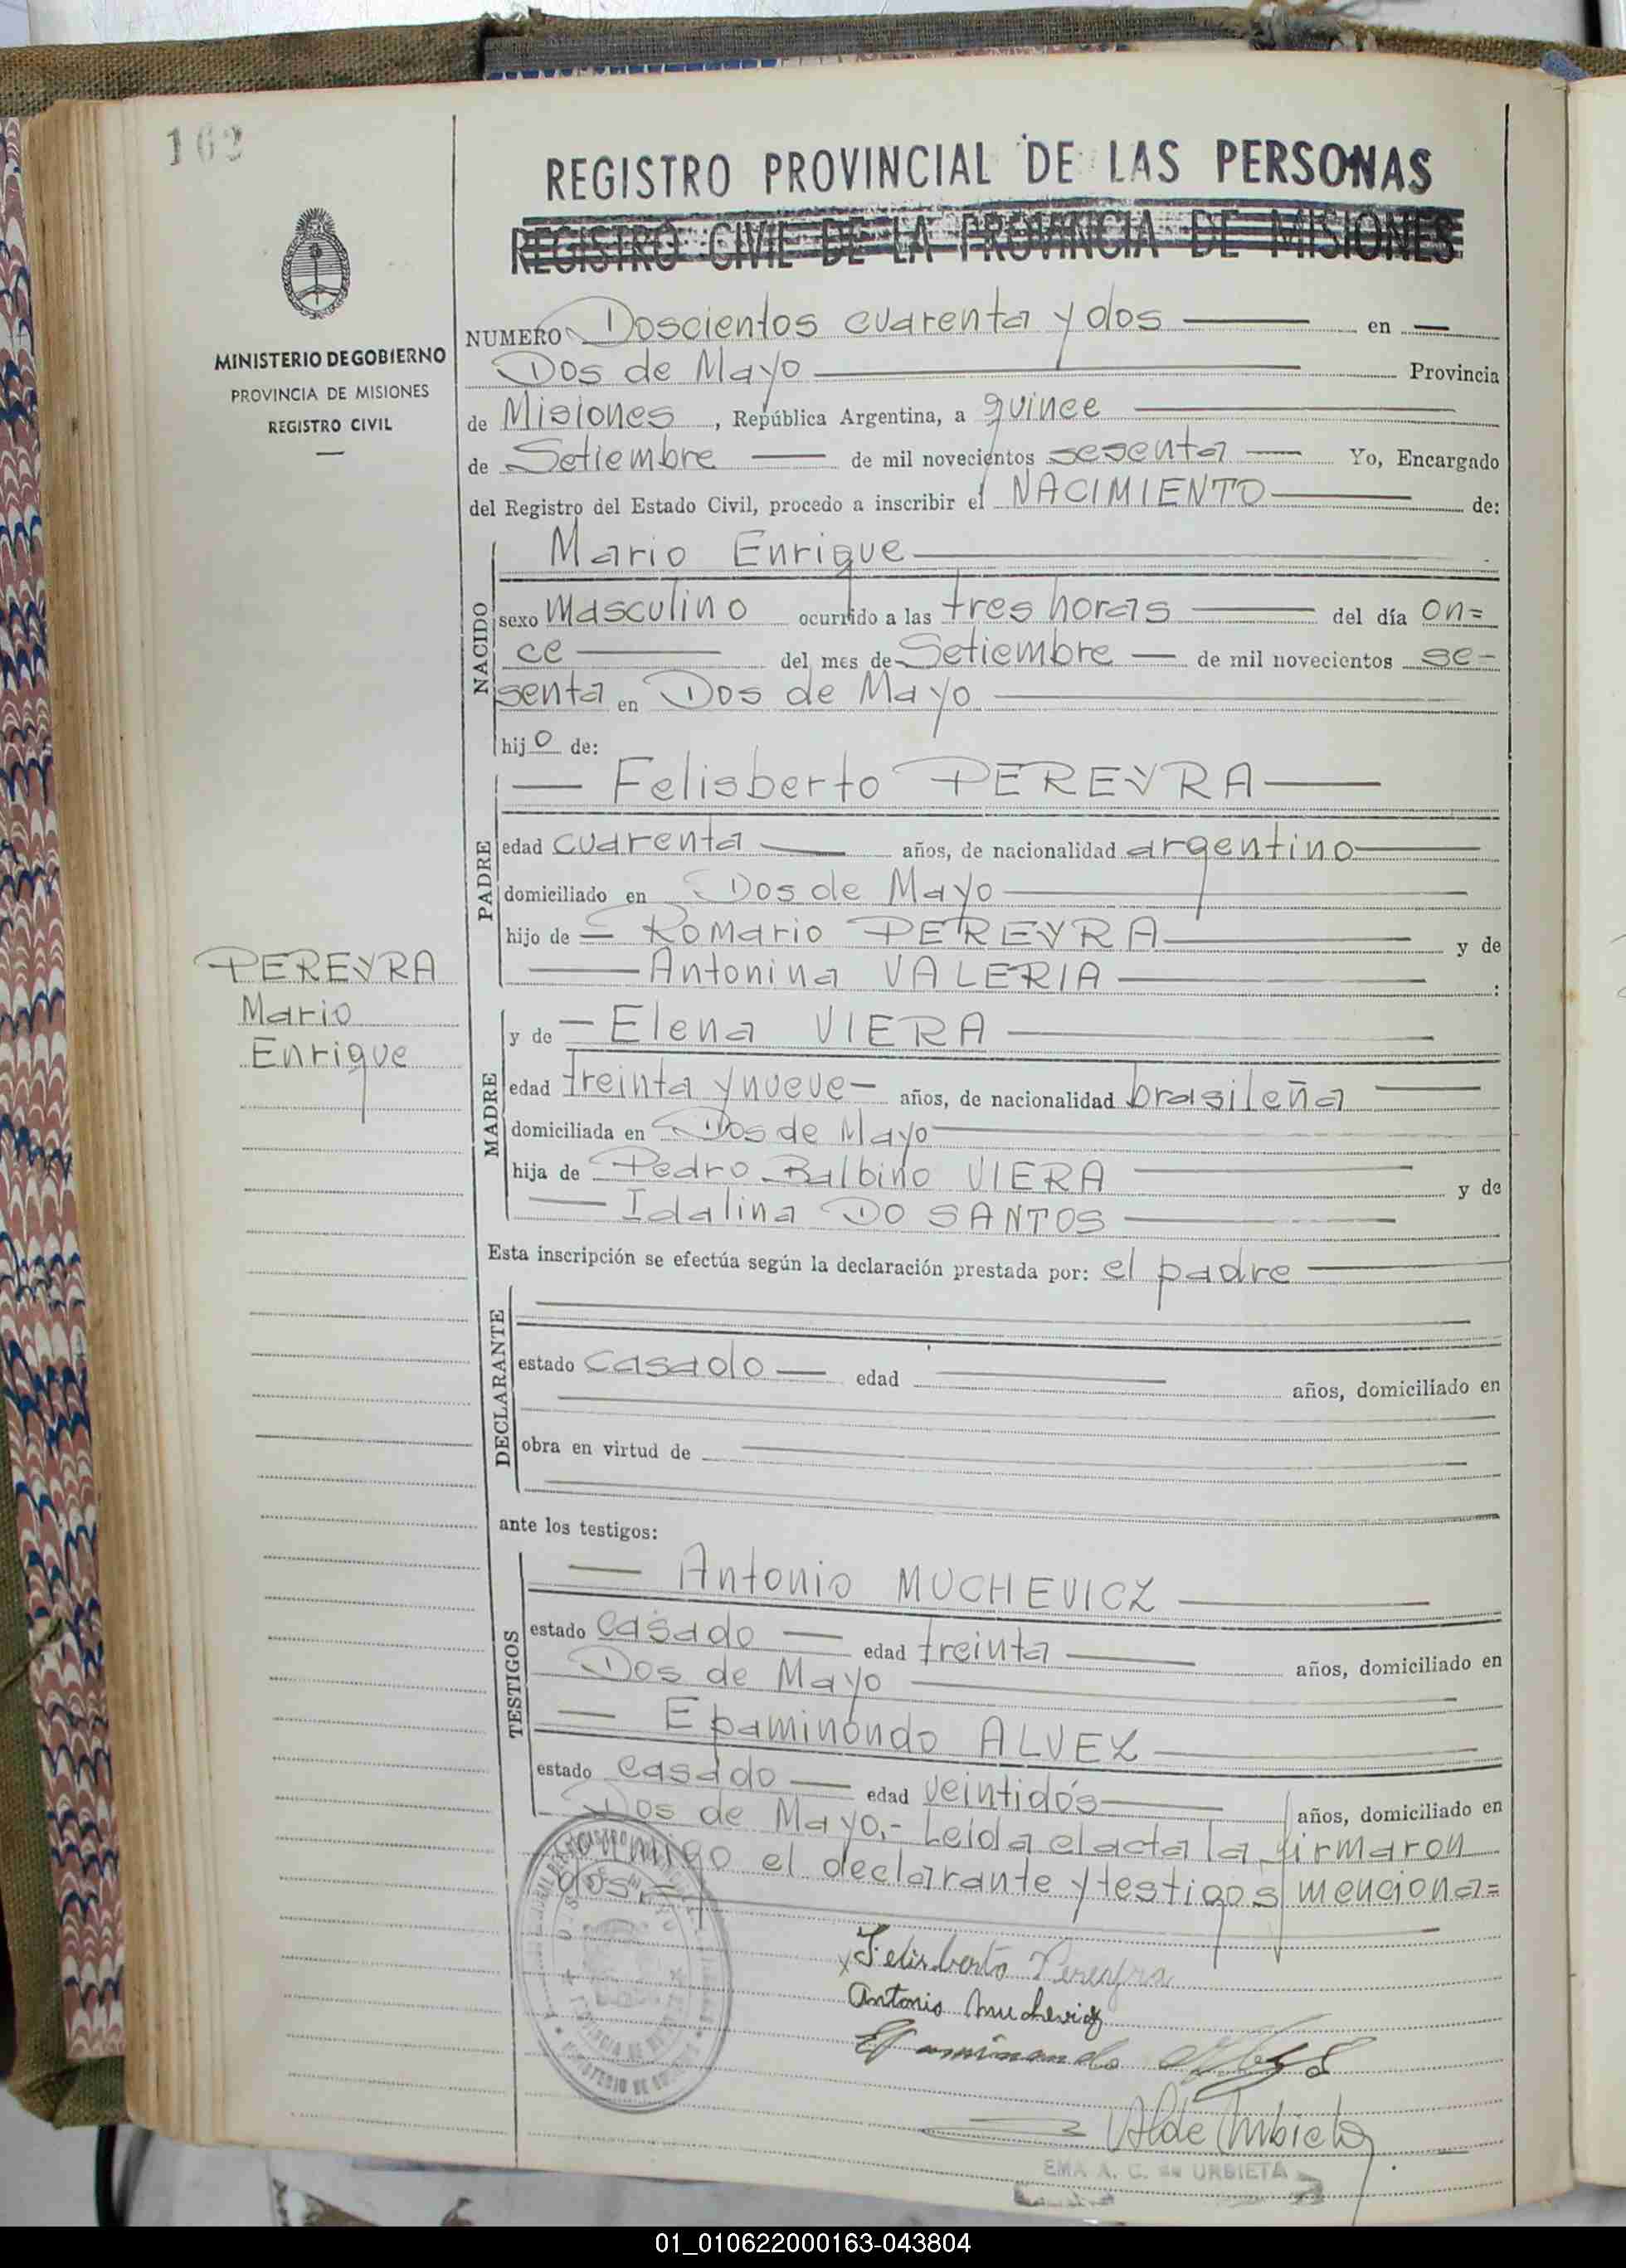 162
REGISTRO PROVINCIAL DE LAS PERSONAS
REGISTRO CIVIL DE LA PROVINCIA DE MISIONES
MINISTERIO DE GOBIERNO
PROVINCIA DE MISIONES
REGISTRO CIVIL
NUMERO Doscientos cuarenta y dos en
Dos de Mayo Provincia
de Misiones, República Argentina, a quince
de Setiembre de mil novecientos sesenta Yo, Encargado
del Registro del Estado Civil, procedo a inscribir el NACIMIENTO de:
NACIDO
Mario Enrique
sexo Masculino ocurrido a las tres horas del día on=
ce del mes de Setiembre de mil novecientos se-
senta en Dos de Mayo
hijo de:
PADRE
Felisberto PEREYRA
edad cuarenta años, de nacionalidad argentino
domiciliado en Dos de Mayo
hijo de Romario PEREYRA y de
Antonina VALERIA :
PEREYRA
Mario
Enrique
MADRE
y de Elena VIERA
edad treinta y nueve años, de nacionalidad brasileña
domiciliada en Dos de Mayo
hija de Pedro Balbino VIERA y de
Idalina DO SANTOS
Esta inscripción se efectúa según la declaración prestada por: el padre
DECLARANTE
estado casado edad años, domiciliado en
obra en virtud de
ante los testigos:
TESTIGOS
Antonio MUCHEVICZ
estado casado edad treinta años, domiciliado en
Dos de Mayo
Epaminondo ALVEZ
estado casado edad veintidós años, domiciliado en
Dos de Mayo.- Leida el acta la firmaron
conmigo el declarante y testigos menciona=
dos.=
Felisberto Pereyra
Antonio Muchevicz
Epaminondo
EMA A. C. de URBIETA
01_010622000163-043804